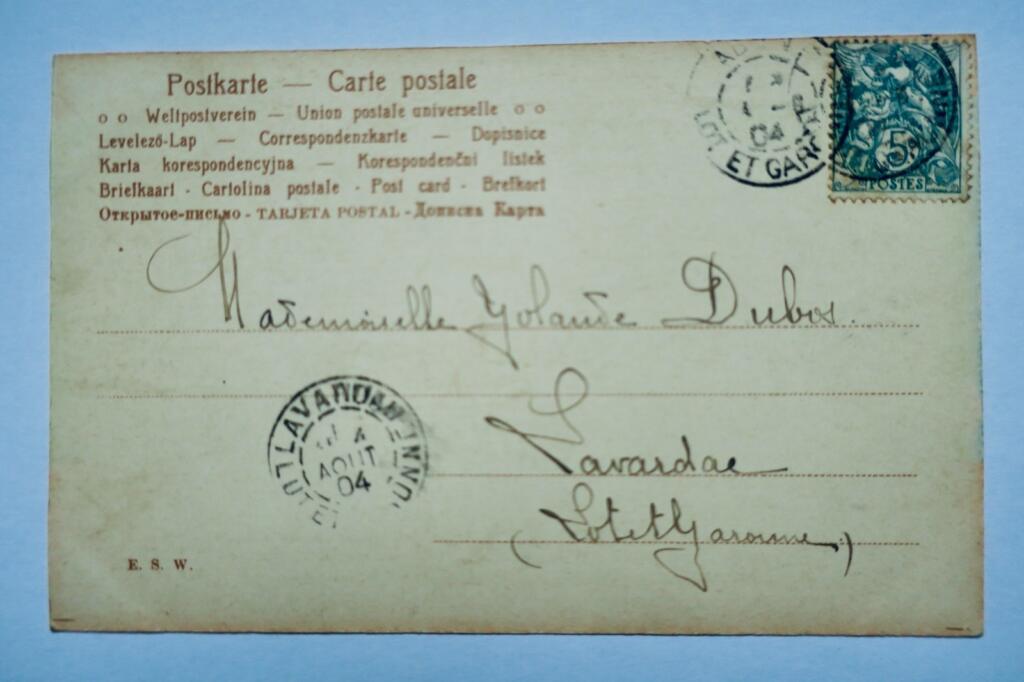 Postkarte — Carte postale
o o Weltpostverein — Union postale universelle o o
Levelezö-Lap — Correspondenzkarte — Dopisnice
Karta korespondencyjna — Korespondenčni listek
Briefkaart - Cartolina postale - Post card - Brefkort
Открытое-письмо - TARJETA POSTAL - Дописна Карта
04
LOT ET GAR
5
POSTES
Mademoiselle Yolande Dubos.
Lavardac
(Lot et Garonne)
LAVARDAC
4
AOUT
04
E. S. W.